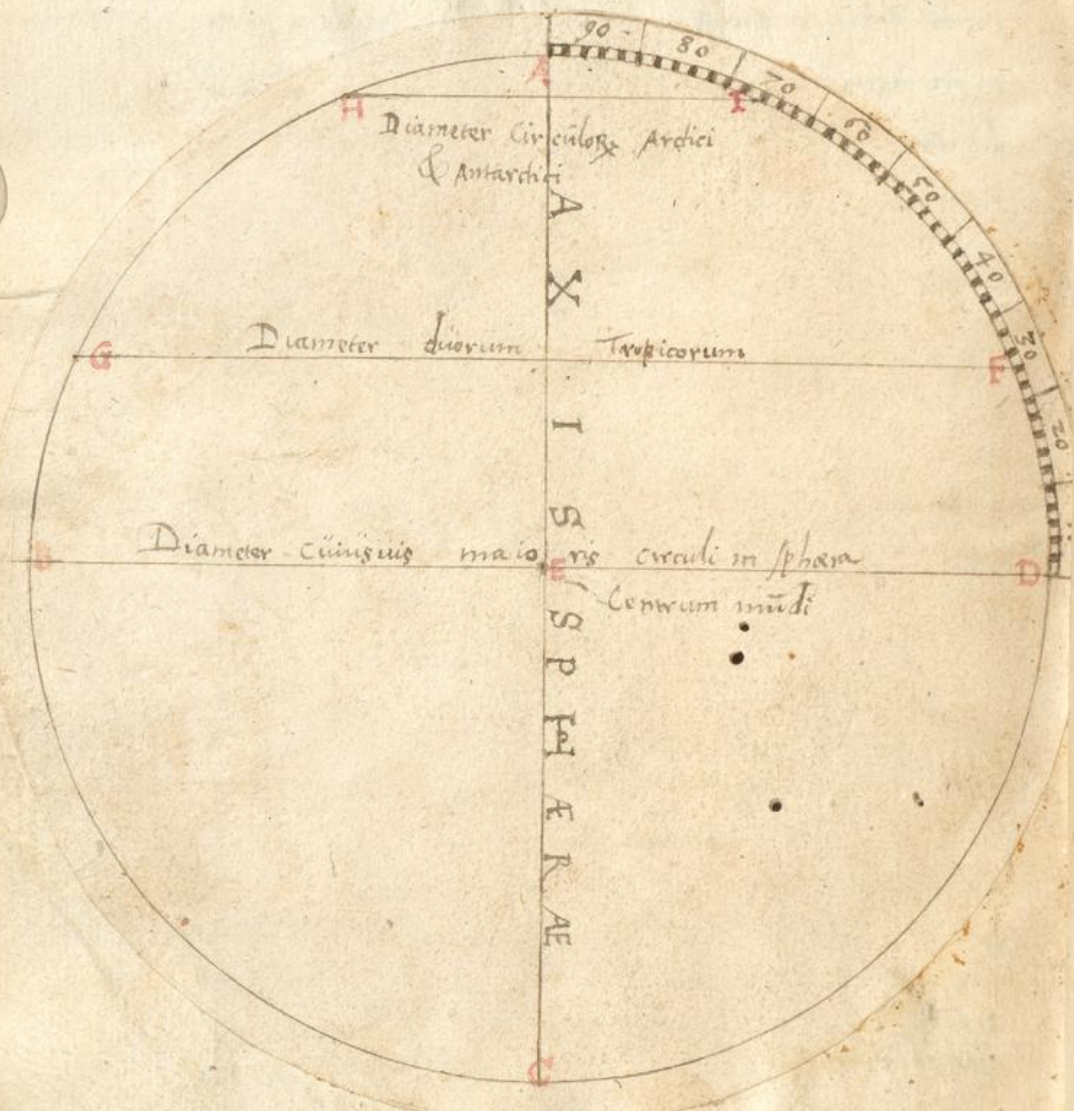 90 80 70 60 50 40 30 20
A
H I
Diameter Circuloꝝ Arctici
& Antarctici
G Diameter duorum Tropicorum F
B Diameter cuiusuis maioris circuli in sphæra D
E
Centrum mūdi
AXIS SPHÆRAE
C